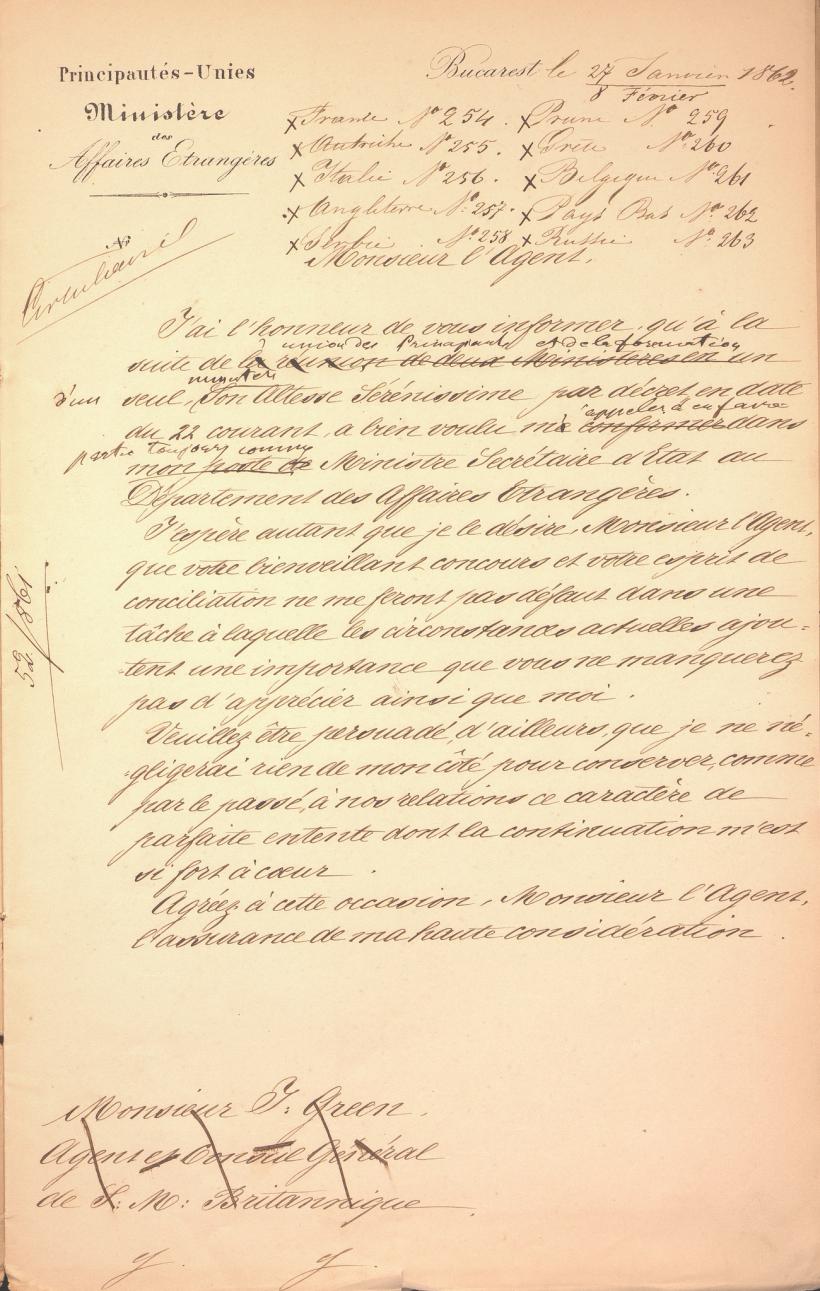 Principautés-Unies
Ministère
des
Affaires Etrangères
Bucarest le 27 Janvier 1862.
8 Février
x France Nº 254. x Prusse Nº 259
x Autriche Nº 255. x Grèce Nº 260
x Italie Nº 256. x Belgique Nº 261
x Angleterre Nº 257. x Pays Bas Nº 262
x Serbie Nº 258 x Russie Nº 263
Nº
Monsieur l'Agent.
J'ai l'honneur de vous informer, qu'à la
union des Principautés et de la formation
suite de la réunion de deux Ministères en un
ministère
d'un seul, Son Altesse Sérénissime par décret en date
appeler à en faire
du 22 courant, a bien voulu me confirmer dans
partie toujours comme
mon poste de Ministre Secrétaire d'Etat au
Département des Affaires Etrangères.
J'espère autant que je le désire, Monsieur l'Agent,
que votre bienveillant concours et votre esprit de
conciliation ne me feront pas défaut dans une
tâche à laquelle les circonstances actuelles ajou-
tent une importance que vous ne manquerez
pas d'apprécier ainsi que moi.
Veuillez être persuadé, d'ailleurs, que je ne né-
gligerai rien de mon côté pour conserver, comme
par le passé, à nos relations ce caractère de
parfaite entente dont la continuation m'est
si fort à cœur.
Agréez à cette occasion, Monsieur l'Agent,
l'assurance de ma haute considération.
52/861
Monsieur J: Green.
Agent et Consul Général
de S: M: Britannique